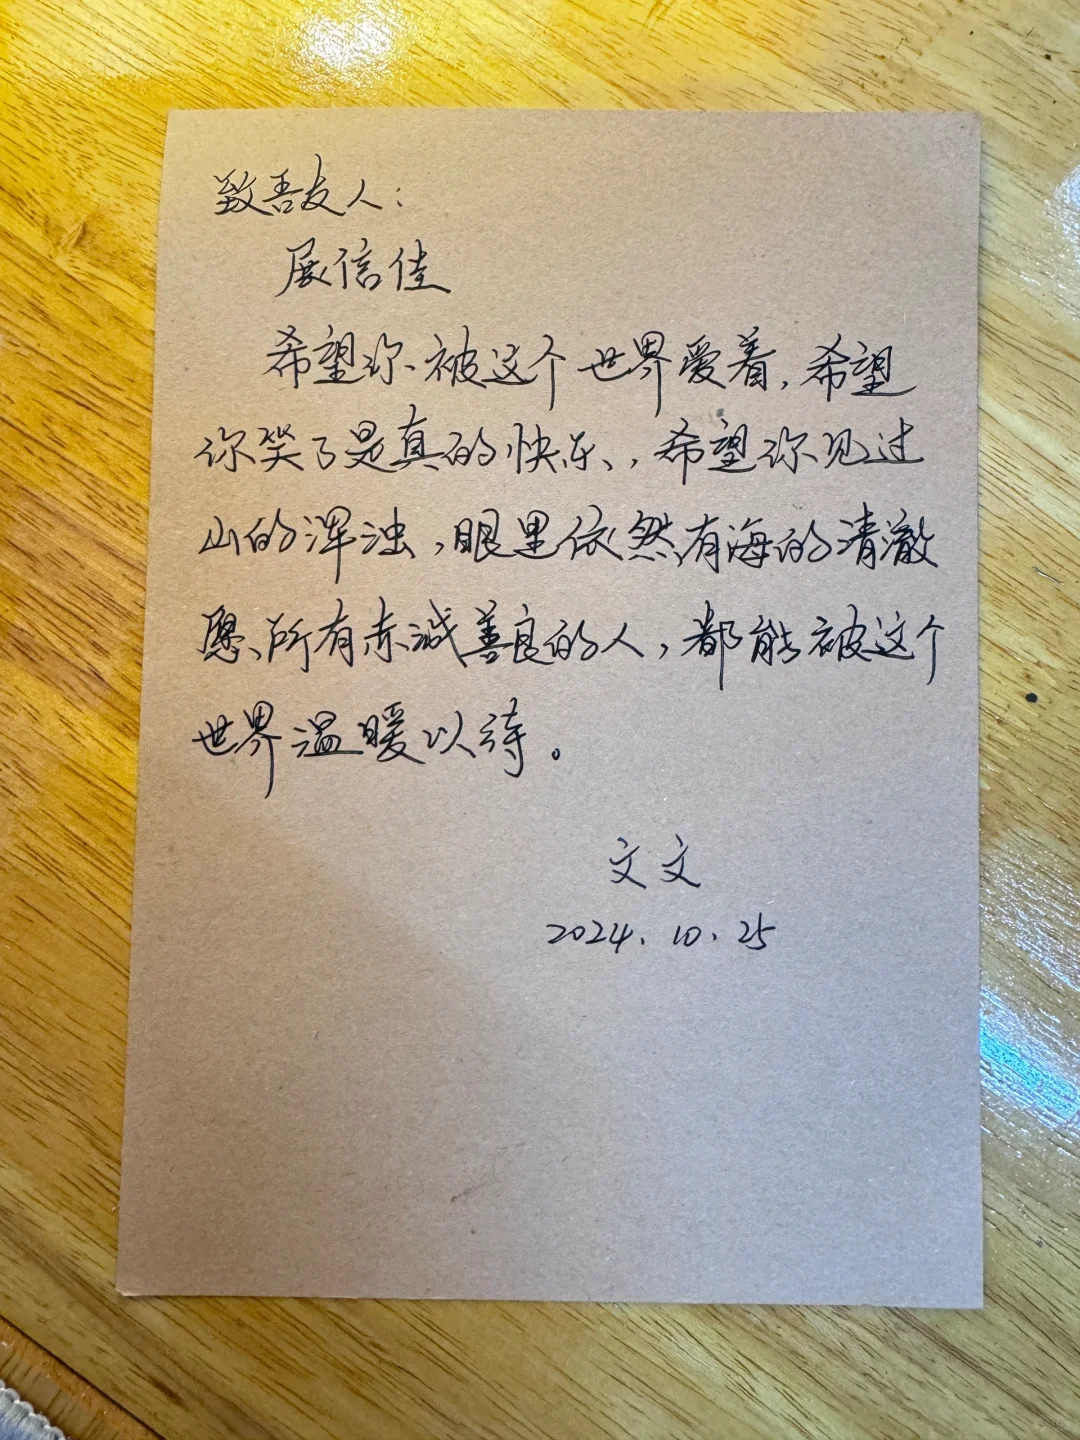 致吾友人：
展信佳
希望你被这个世界爱着，希望
你笑了是真的快乐，希望你见过
山的浑浊，眼里依然有海的清澈
愿所有赤诚善良的人，都能被这个
世界温暖以待。
文文
2024.10.25